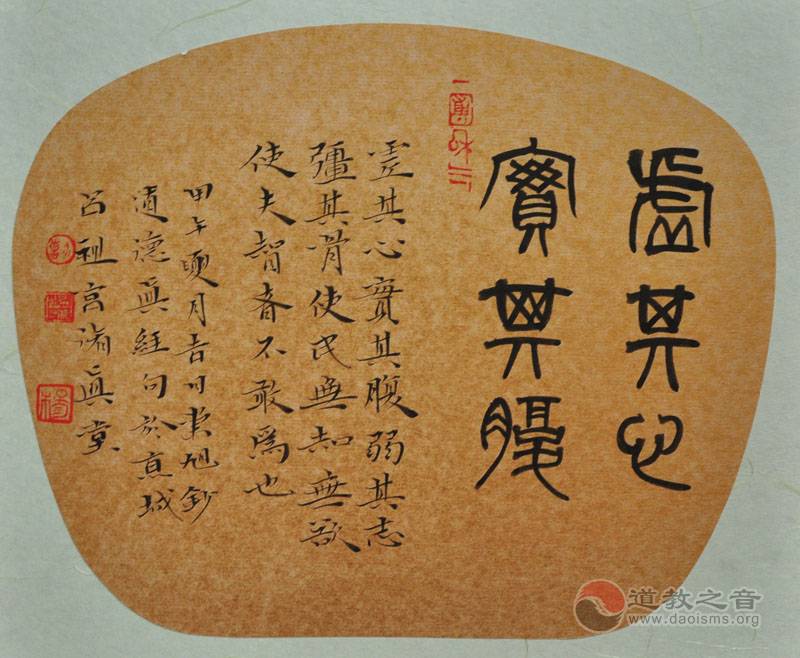 虛其心
實其腹
虛其心實其腹弱其志
彊其骨使民無知無欲
使夫智者不敢爲也
甲午夏月吉日旭鈔
道德眞經句於京城
呂祖宮諸眞堂
道教之音
www.daoisms.org